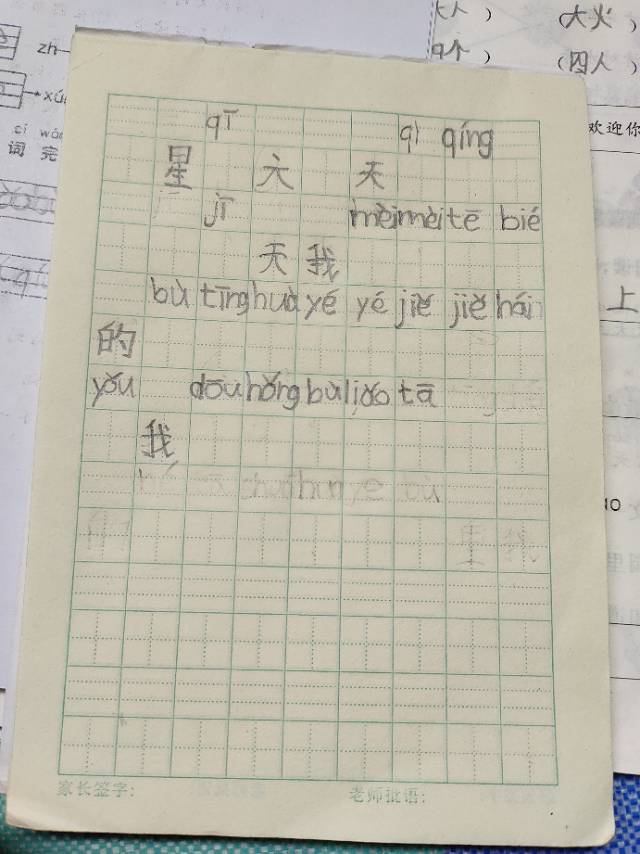 zh
xú
cí
词 完
大人 ）
（大火 ）
（四人 ）
欢迎你
上
qī qì qíng
星 六 天
jī mèi mèi tē bié
天 我
bù tīng huà yé yé jiě jiě hái
的
yǒu dōu hǒng bù liǎo tā
我
家长签字：
老师批语：